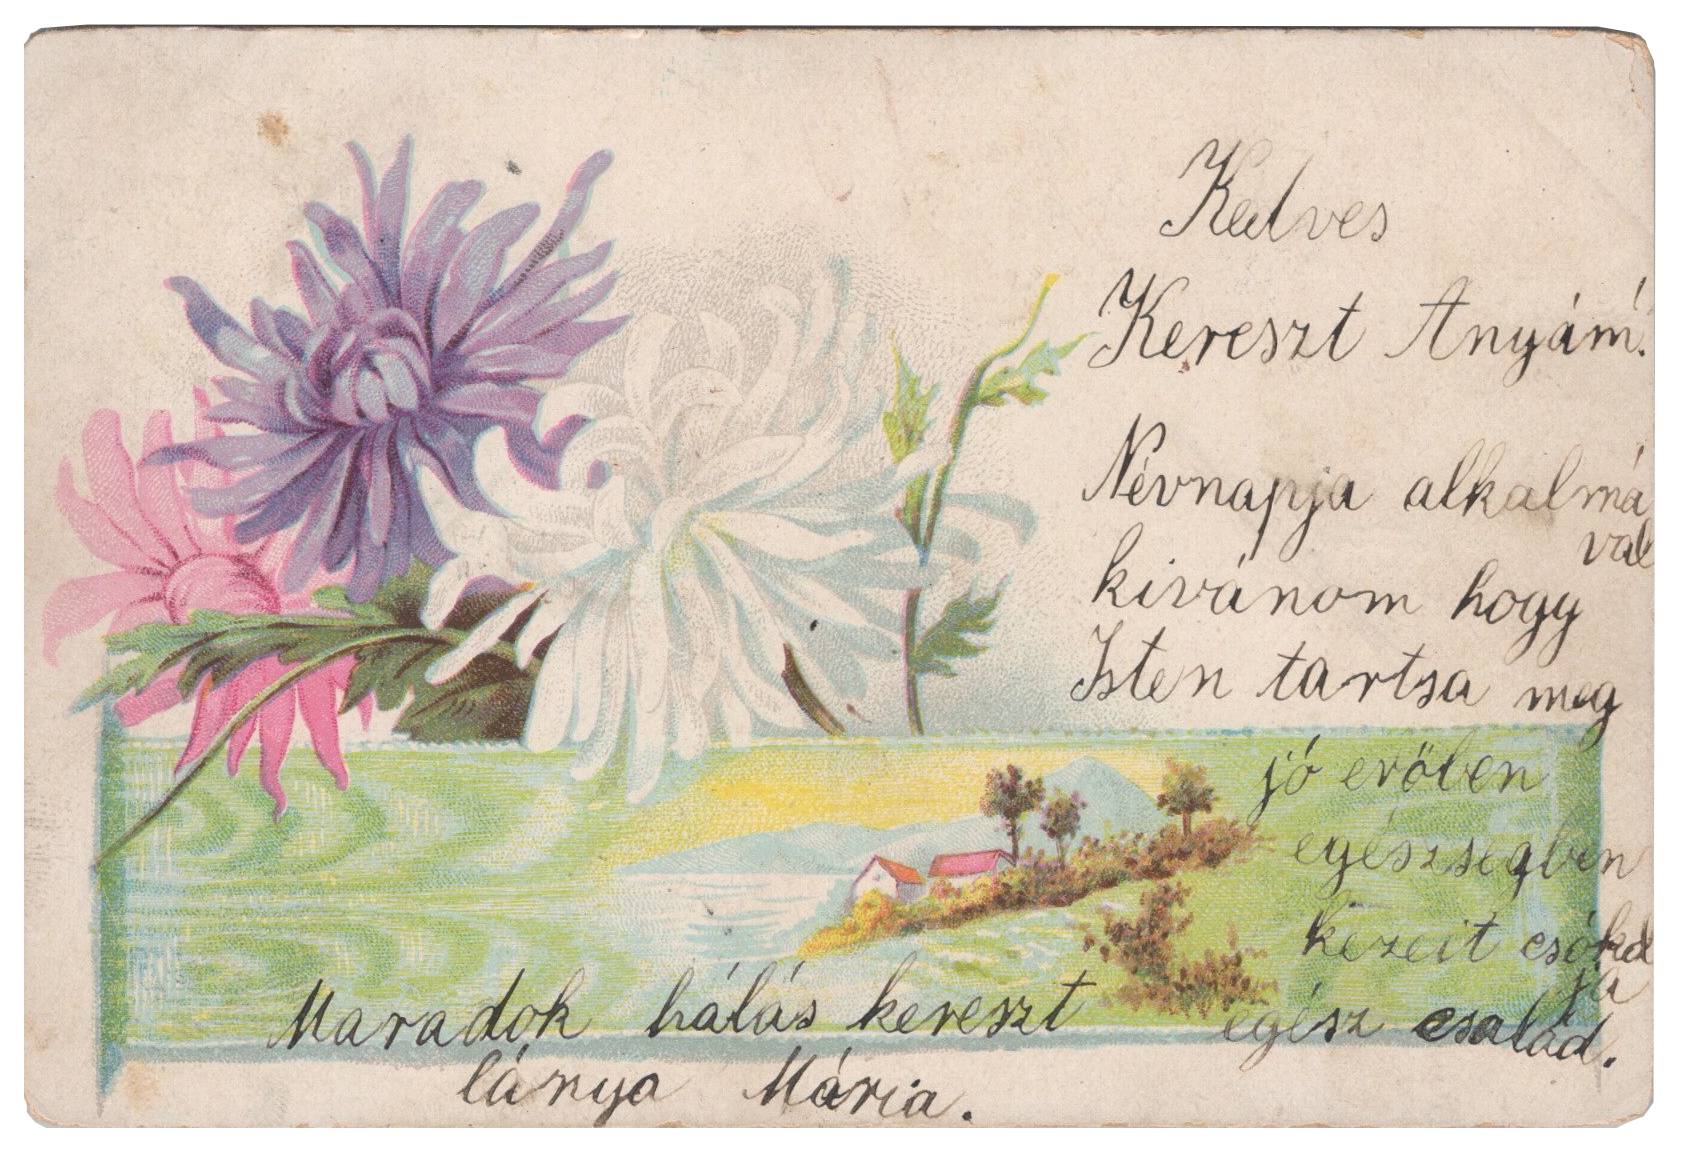 Kedves
Kereszt Anyám!
Névnapja alkalmá
val
kivánom hogy
Isten tartsa meg
jó erőben
egészségben
kezeit csókol
ja
egész család.
Maradok hálás kereszt
lánya Mária.